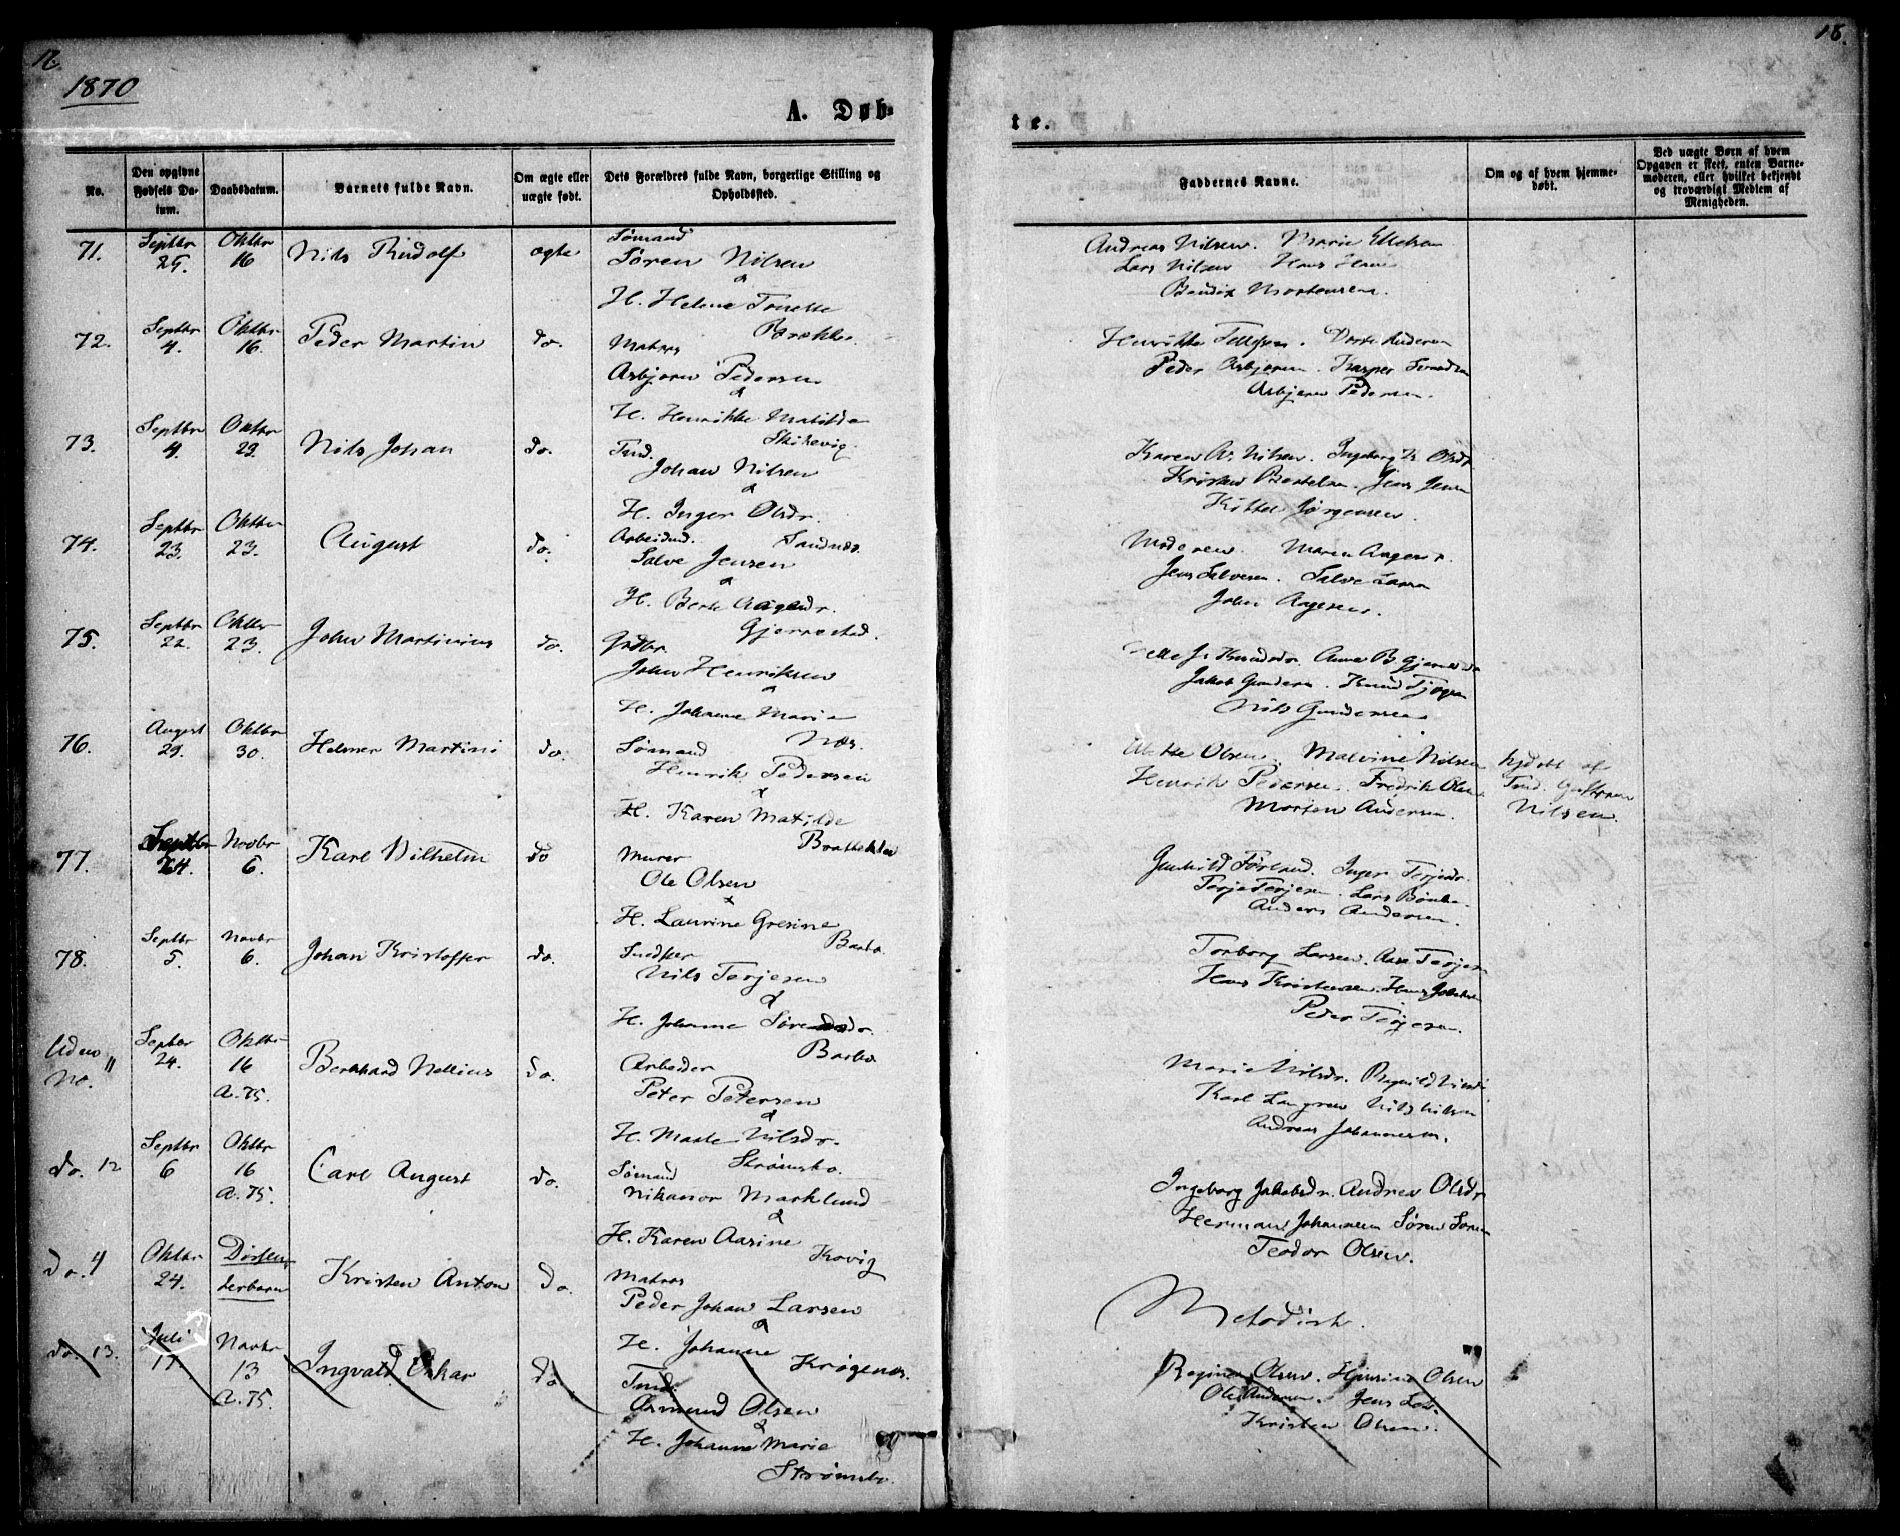 1870
18.
A. Døb-
te.
No.
Den opgivne Fødsels Da-
tum.
Daabsdatum.
Barnets fulde Navn.
Om ægte eller
uægte født.
Dets Forældres fulde Navn, borgerlige Stilling og
Opholdssted.
Faddernes Navne.
Om og af hvem hjemme-
døbt.
Ved uægte Børn af hvem
Opgaven er skeet, enten Barne-
moderen, eller hvilket bekjendt
og troværdigt Medlem af
Menigheden.
71.
Septbr
25.
Oktbr
16
Nils Rudolf
ægte
Sømand
Søren Nilsen
&
H. Helene Tonette
Brække.
Andreas Nilsen. Marie
Lars Nilsen Hans
Bendix Mortensen.
72.
Septbr
4.
Oktbr
16.
Peder Martin
do.
Matros
Asbjørn Pedersen
&
H. Henrikke Matilde
Skilevig.
Henrikke Tellefsen. Dorte
Peder Asbjørnsen. Kasper
Asbjørn Pedersen.
73.
Septbr
4.
Oktbr
23.
Nils Johan
do.
Tmd.
Johan Nilsen
&
H. Inger Olsdr.
Sandnes.
Karen A. Nilsen. Ingeborg K. Olsdr
Kristen Jens Jensen
Kittel Jørgensen.
74.
Septbr
23.
Oktbr
23.
August
do.
Arbeidsmd.
Salve Jensen
&
H. Berte Aagesdr.
Gjerrestad.
Moderen. Maren Aagesdr.
Jens Salvesen. Salve Larsen
John Aagesen.
75.
Septbr
22.
Oktbr
23.
John Martinius
do.
Grdbr.
John Henriksen
&
H. Johanne Marie
Næs.
Knudsdr Anne B.
Jakob Gundersen. Knud
Nils Gundersen
76.
August
29.
Oktbr
30.
Helmer Martini
do.
Sømand
Henrik Pedersen
&
H. Karen Matilde
Brattekleiv
Mette Olsen. Malvine Nilsen
Henrik Pedersen. Fredrik Olsen
Morten Andersen.
hjdøbt af
Tmd.
Nilsen.
77.
Septbr
24.
Novbr
6.
Karl Vilhelm
do
Murer
Ole Olsen
&
H. Laurine Gresine
Barbo.
Gunhild Inger Terjesdr.
Terje Terjesen. Lars
Anders Andersen.
78.
Septbr
5.
Novbr
6.
Johan Kristoffer
do.
Snedker
Nils Terjesen
&
H. Johanne Sørensdr.
Barbo
Torborg Larsen. Aase Terjesen
Hans Kristensen. Hans Jakobsen
Peder Terjesen.
Uden
No. 11
Septbr
24.
Oktbr
16
A. 75.
Bernhard Nellius
do.
Arbeider
Peter Petersen
&
H. Marte Nilsdr.
Strømsbo.
Marie Nilsdr.
Karl Nils Nilsen
Andreas Johannesen.
do. 12
Septbr
6
Oktbr
16
A. 75.
Carl August
do.
Sømand
Nikanor Marklund
&
H. Karen Aasine
Kovig
Ingeborg Jakobsdr. Andrea Olsdr
Herman Johannesen Søren
Teodor Olsen.
do. 4
Oktbr
24.
Dissen-
terbarn
Kristen Anton
do.
Matros
Peder Johan Larsen
&
H. Johanne
Krøgenes.
Metodist.
do. 13.
Juli
17.
Novbr
13
A. 75.
Ingvald Oskar
do
Tmd.
Osmund Olsen
&
H. Johanne Marie
Strømsbo.
Regine Olsen. Olsen
Ole Andersen. Jens
Kristen Olsen.